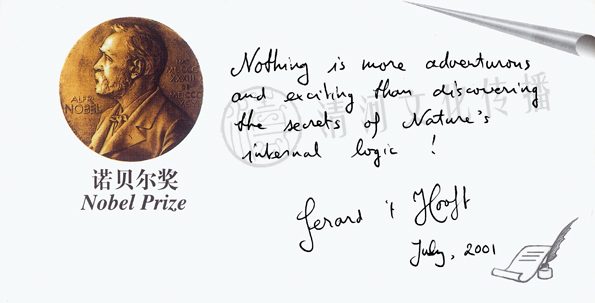 ALFR. NOBEL
诺贝尔奖
Nobel Prize
Nothing is more adventurous
and exciting than discovering
the secrets of Nature's
internal logic !
Gerard 't Hooft
July, 2001
清河文化传播